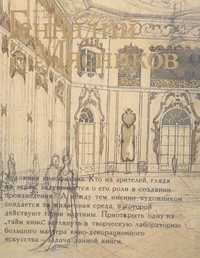 Геннадий
Мясников
Художник кинофильма. Кто из зрителей, глядя
на экран, задумывается о его роли в создании
произведения? А между тем именно художником
создается та жизненная среда, в которой
действуют герои картины. Приоткрыть одну из
„тайн кино", заглянуть в творческую лабораторию
большого мастера кино-декорационного
искусства — задача данной книги.